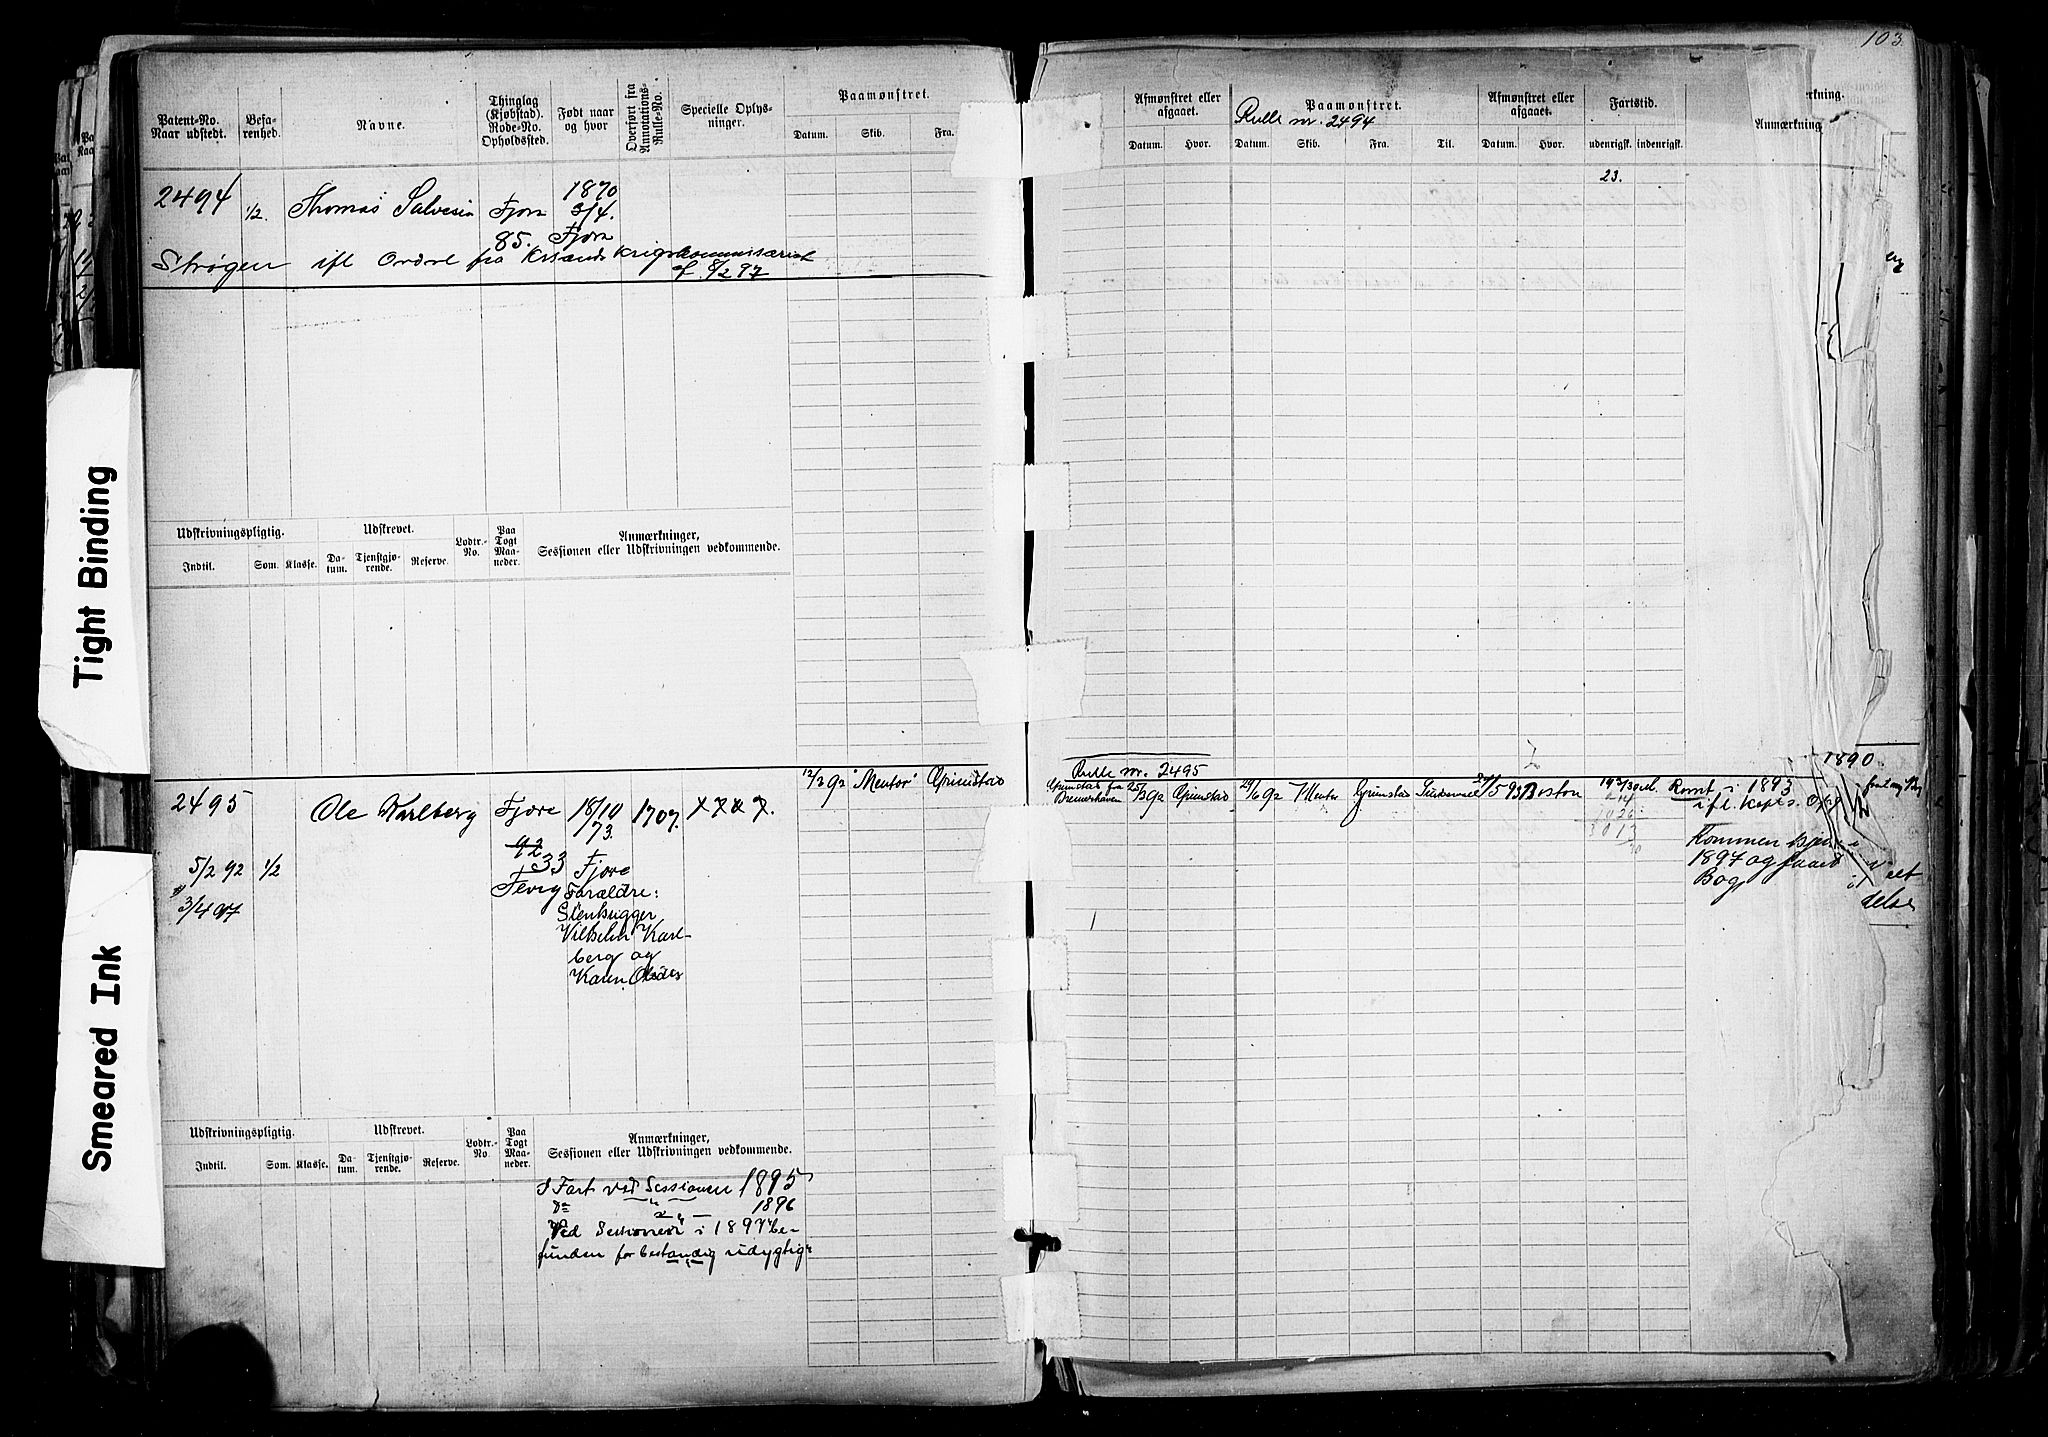 103.
Patent-No. Naar udstedt.
Befarenhed.
Navne.
Thinglag (Kjøbstad). Rode-No. Opholdssted.
Født naar og hvor
Overført fra Annotations-Rulle-No.
Specielle Oplysninger.
Paamønstret.
Datum. Skib. Fra.
Afmønstret eller afgaaet.
Datum. Hvor.
Rulle nr. 2494
Paamønstret.
Datum. Skib. Fra. Til.
Afmønstret eller afgaaet.
Datum. Hvor.
Fartstid.
udenrigsk. indenrigsk.
Anmærkning
23.
2494 1/2. Thomas Salvesen Fjære 1870
3/4.
85. Fjære
Strøgen ifl Ordre fra Krsands Krigskommissariat
af 8/2 97
Udskrivningspligtig.
Indtil. Som. Klasse.
Udskrevet.
Datum. Tjenstgjørende. Reserve.
Lodtr.-No.
Paa Togt Maaneder.
Anmærkninger,
Sessionen eller Udskrivningen vedkommende.
Tight Binding
Smeared Ink
Rulle nr. 2495
1890
2495 Ole Karlberg Fjære 18/10 1707.
73.
92
33 Fjære
5/2 92 1/2
Fevig Forældre:
3/4 97
Stenhugger
Vilhelm Karl-
berg og
Karen Olsdtr
12/3 92 "Mentor" Grimstad
Grimstad fra Bremerhaven 25/5 92 Grimstad
29/6 92 Mentor Grimstad
5 93 Boston
Romt i 1893
ifl. Kapts. Opg
Kommen hjem i
1897 og faaet
Bog
Udskrivningspligtig.
Indtil. Som. Klasse.
Udskrevet.
Datum. Tjenstgjørende. Reserve.
Lodtr.-No.
Paa Togt Maaneder.
Anmærkninger,
Sessionen eller Udskrivningen vedkommende.
I Fart ved Sessionen 1895
Do " 1896
Ved Sessionen i 1897 be-
funden for bestandig udygtig